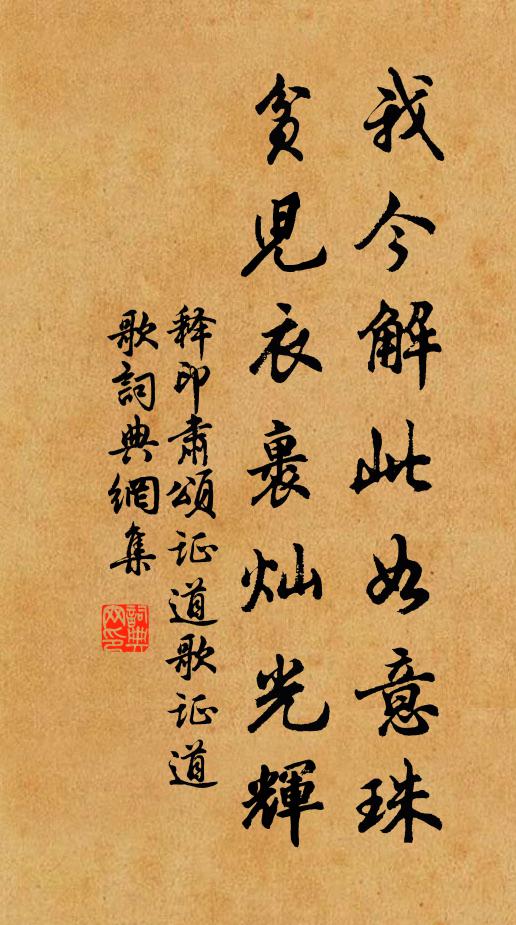 我今解此如意珠
貧兒衣裹灿光輝
释印肅頌证道歌证道
歌詞典網集
詞典
网印